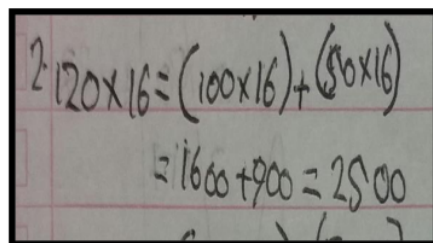 2. 120×16=(100×16)+(50×16)
=1600+900=2500